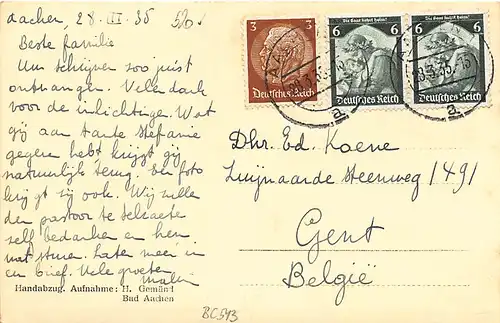 Aachen, 28.III.35
Beste familie
Uw schrijven zoo juist
ontvangen. Vele dank
voor de inlichtige. Wat
gij aan tante Stefanie
gegeven hebt krijgt gij
natuurlijk terug. Een foto
krijgt gij ook. Wij zullen
den pastoor te
zelf bedanken en hem
wat sturen. Later meer in
een brief. Vele groeten
Handabzug. Aufnahme: H. Gemünd
Bad Aachen
BC593
3 3
Deutsches Reich
Die Saar kehrt heim!
6 6
Deutsches Reich
Die Saar kehrt heim!
6 6
Deutsches Reich
a
a
Dhr. Ed. Koene
Zwijnaarde steenweg 1491
Gent
België